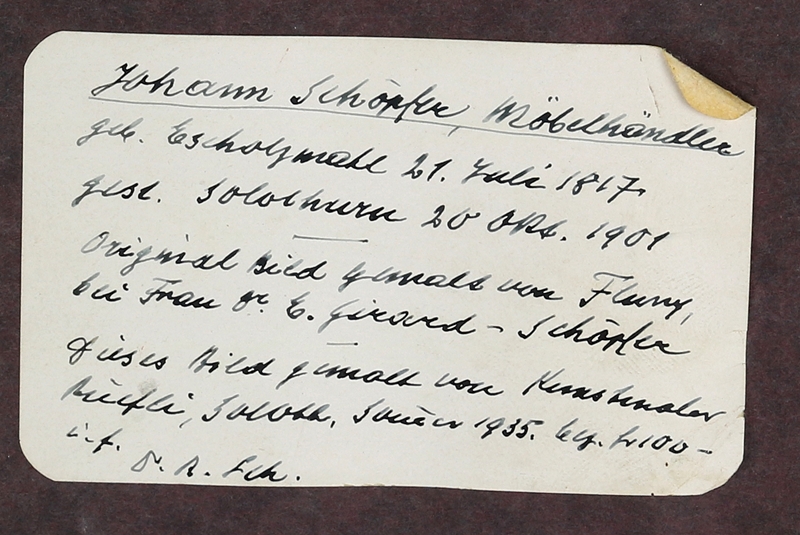 Johann Schöpfer, Möbelhändler
geb. Escholzmatt 21. Juli 1817.
gest. Solothurn 20 Okt. 1901
Original Bild gemalt von Flury,
bei Frau Dr. E. Girard - Schöpfer
Dieses Bild gemalt von Kunstmaler
Soloth. 1935. 100 -
Sch.